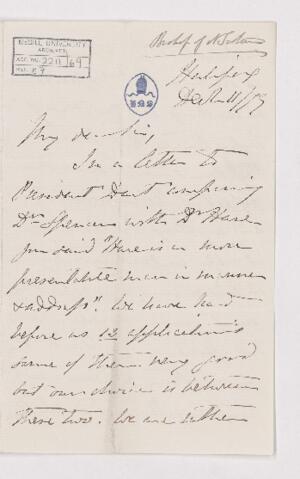 Bishop of N. Scotia
McGILL UNIVERSITY
ARCHIVES
ACC. NO. 2211/69
REF. 27
Halifax
My dear Sir,
In a letter to
President Dart comparing
Dr. Spencer with Dr. Hare
you said "Hare is a more
presentable man in manner
& address". We have had
before us 12 applications
some of them very good
but our choice is between
these two. We are rather